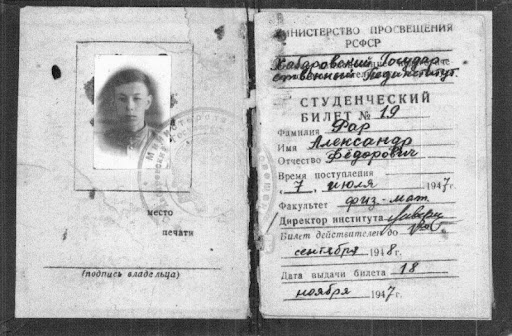 место
печати
(подпись владельца)
МИНИСТЕРСТВО ПРОСВЕЩЕНИЯ
РСФСР
Хабаровский Государ
ственный Пединститут
СТУДЕНЧЕСКИЙ
БИЛЕТ № 19
Фамилия Фар
Имя Александр
Отчество Фёдорович
Время поступления
„ 7 „ июля 1947 г.
Факультет физ-мат.
Директор института
Билет действителен до
сентября 1948 г.
Дата выдачи билета 18
ноября 1947 г.